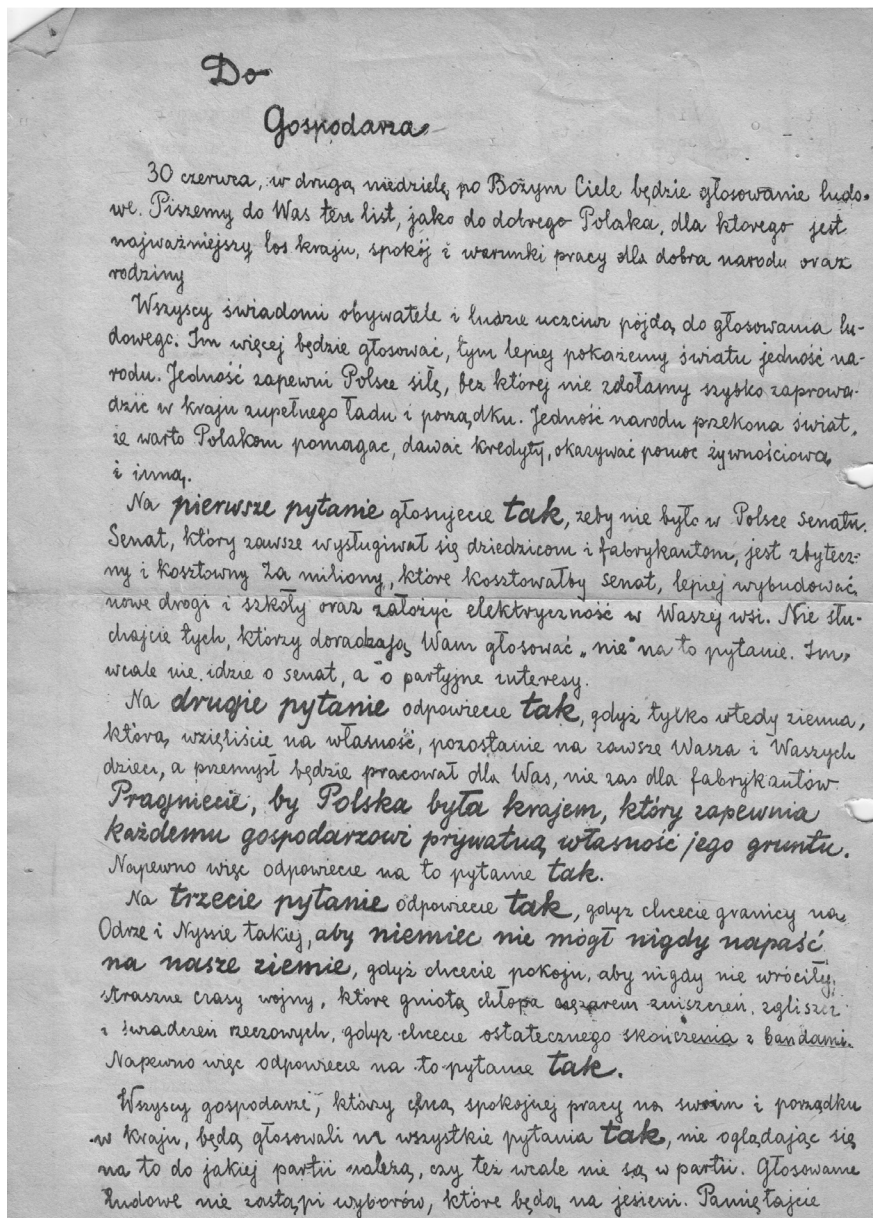 Do
Gospodarza
30 czerwca, w drugą niedzielę po Bożym Ciele będzie głosowanie ludo-
we. Piszemy do Was ten list, jako do dobrego Polaka, dla ktorego jest
najważniejszy los kraju, spokój i warunki pracy dla dobra narodu oraz
rodziny
Wszyscy świadomi obywatele i ludzie uczciwi pójdą do głosowania lu-
dowego. Im więcej będzie głosować, tym lepiej pokażemy światu jedność na-
rodu. Jedność zapewni Polsce siłę, bez której nie zdołamy szybko zaprowa-
dzić w kraju zupełnego ładu i porządku. Jedność narodu przekona świat,
że warto Polakom pomagac, dawać kredyty, okazywać pomoc żywnościową
i inną.
Na pierwsze pytanie głosujecie tak, żeby nie było w Polsce senatu.
Senat, który zawsze wysługiwał się dziedzicom i fabrykantom, jest zbytecz-
ny i kosztowny Za miliony, które kosztowałby senat, lepiej wybudować
nowe drogi i szkoły oraz założyć elektryczność w Waszej wsi. Nie słu-
chajcie tych, którzy doradzają Wam głosować „nie" na to pytanie. Im
wcale nie idzie o senat, a o partyjne interesy.
Na drugie pytanie odpowiecie tak, gdyż tylko wtedy ziemia,
którą wzięliście na własność, pozostanie na zawsze Wasza i Waszych
dzieci, a przemysł będzie pracował dla Was, nie zas dla fabrykantów
Pragniecie, by Polska była krajem, który zapewnia
każdemu gospodarzowi prywatną własność jego gruntu.
Napewno więc odpowiecie na to pytanie tak.
Na trzecie pytanie odpowiecie tak, gdyz chcecie granicy na
Odrze i Nyssie takiej, aby niemiec nie mógł nigdy napaść
na nasze ziemie, gdyż chcecie pokoju, aby nigdy nie wróciły
straszne czasy wojny, które gniotą chłopa ciężarem zniszczeń, zgliszcz
i świadczeń rzeczowych, gdyż chcecie ostatecznego skończenia z bandami.
Napewno więc odpowiecie na to pytanie tak.
Wszyscy gospodarze, którzy chcą spokojnej pracy na swoim i porządku
w kraju, będą głosowali na wszystkie pytania tak, nie oglądając się
na to do jakiej partii należą, czy też wcale nie są w partii. Głosowanie
ludowe nie zastąpi wyborów, które będą na jesieni. Pamiętajcie